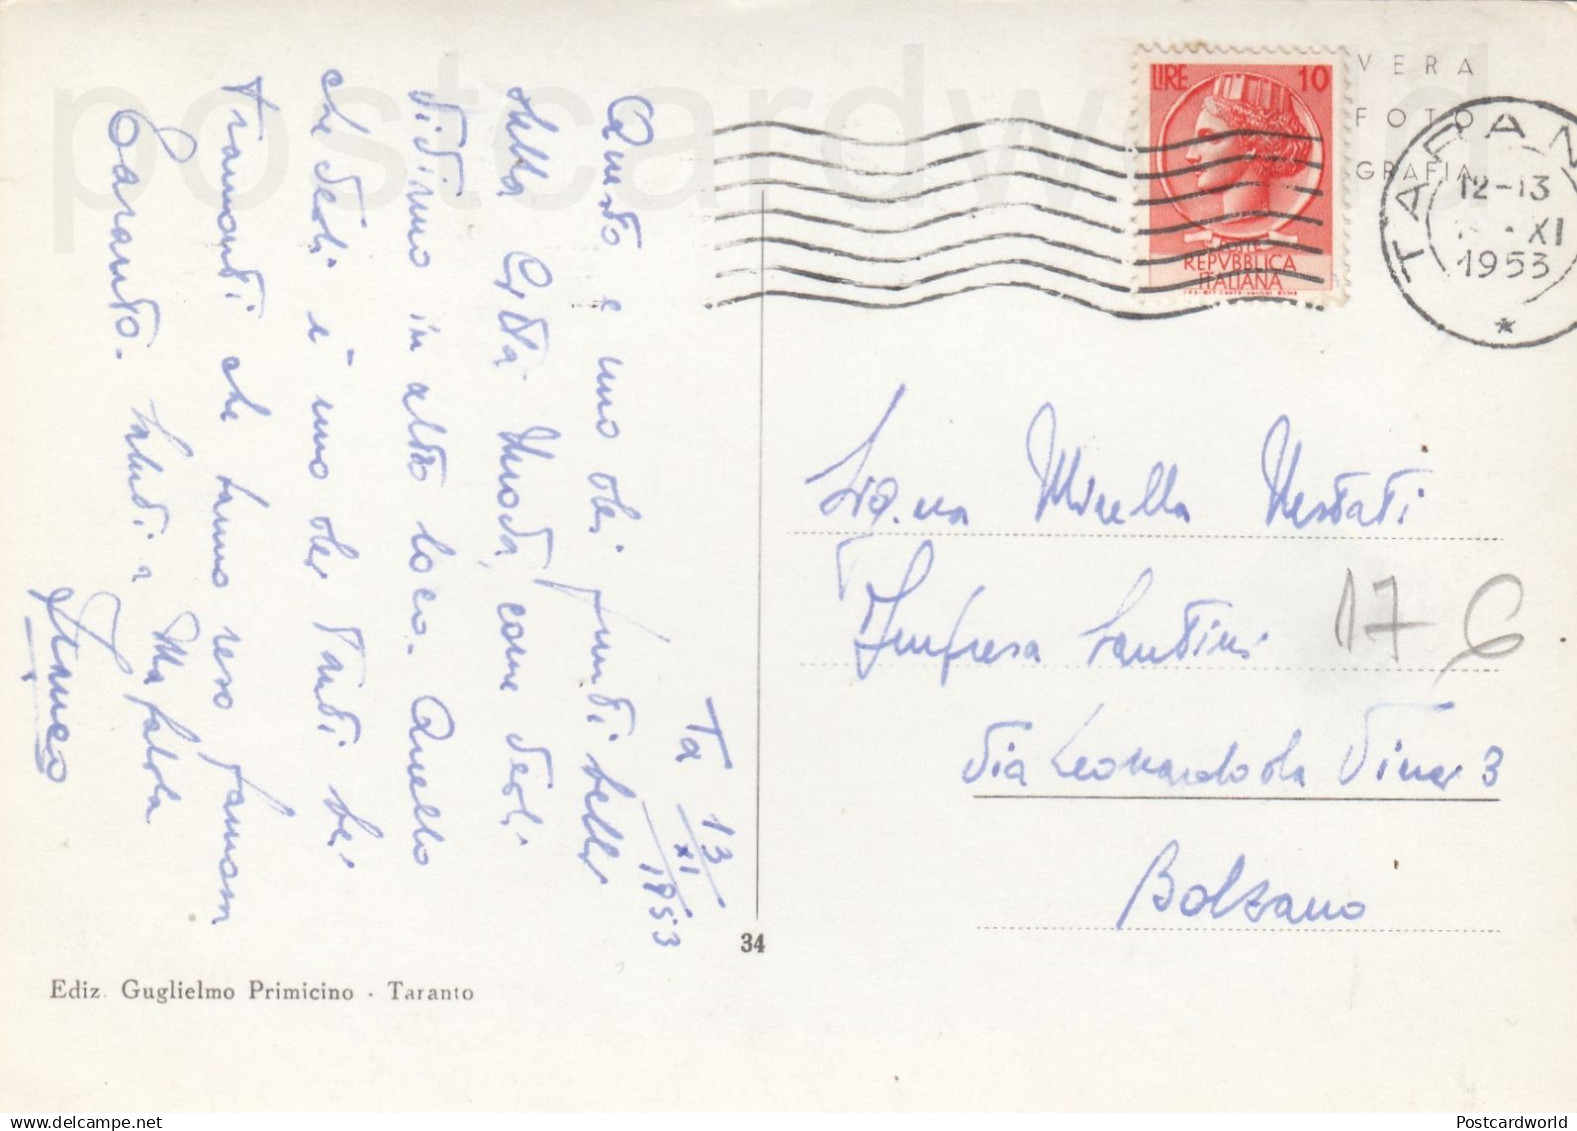 Ta 13/XI/1953
Questo è uno dei punti belli
della Città Nuova, come vedi
vidimo in altro loco. Quello
che vedi è uno dei tanti bei
tramonti che hanno reso famosa
Taranto. Saluti a Mafalda
Franco
34
Ediz. Guglielmo Primicino - Taranto
LIRE 10
POSTE
REPVBBLICA
ITALIANA
VERA
FOTO
GRAFIA
TARAN
12-13
XI
1953
Sig.na Mirella
Impresa Santini
Via Leonardo da Vinci 3
Bolzano
17 6
postcardworld
Postcardworld